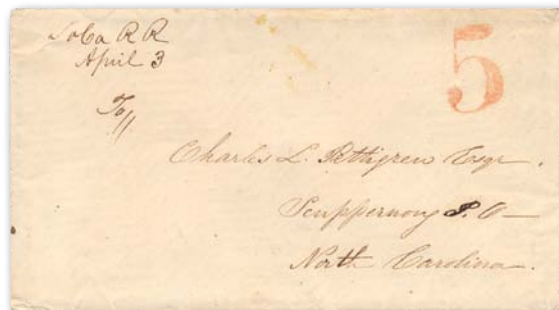 So Ca R R
April 3
5
To
Charles L. Pettigrew Esqr.
Scuppernong P. O
North Carolina.